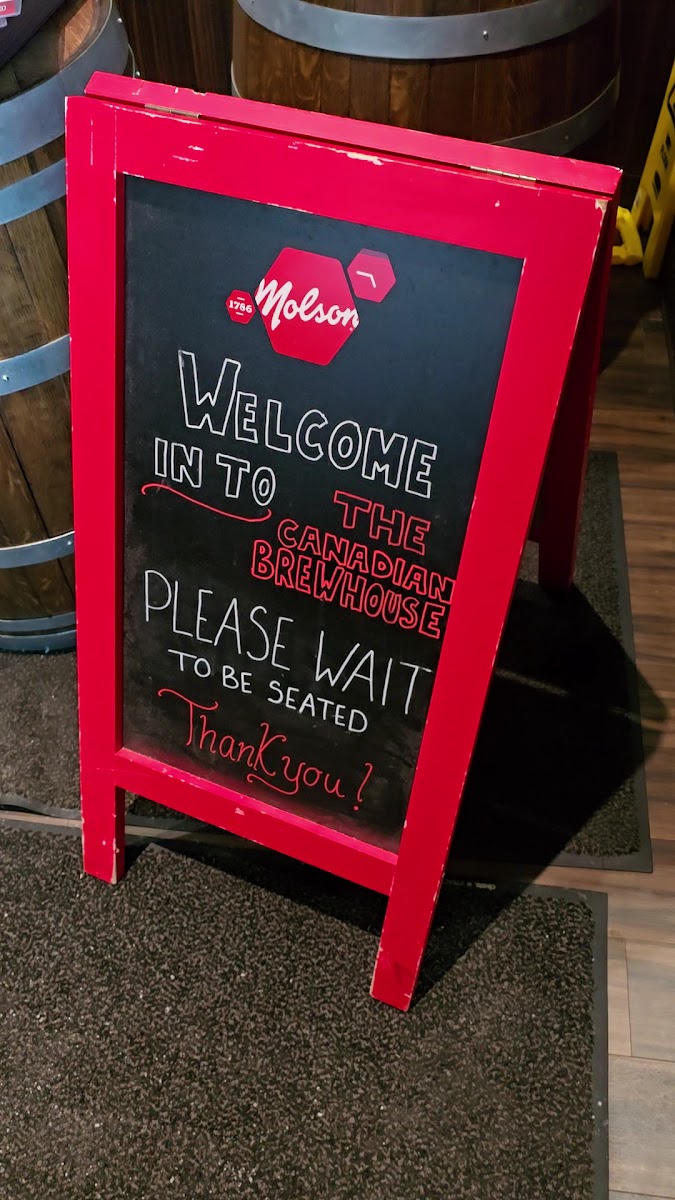 Molson
1786
WELCOME
IN TO
THE
CANADIAN
BREWHOUSE
PLEASE WAIT
TO BE SEATED
Thank you!